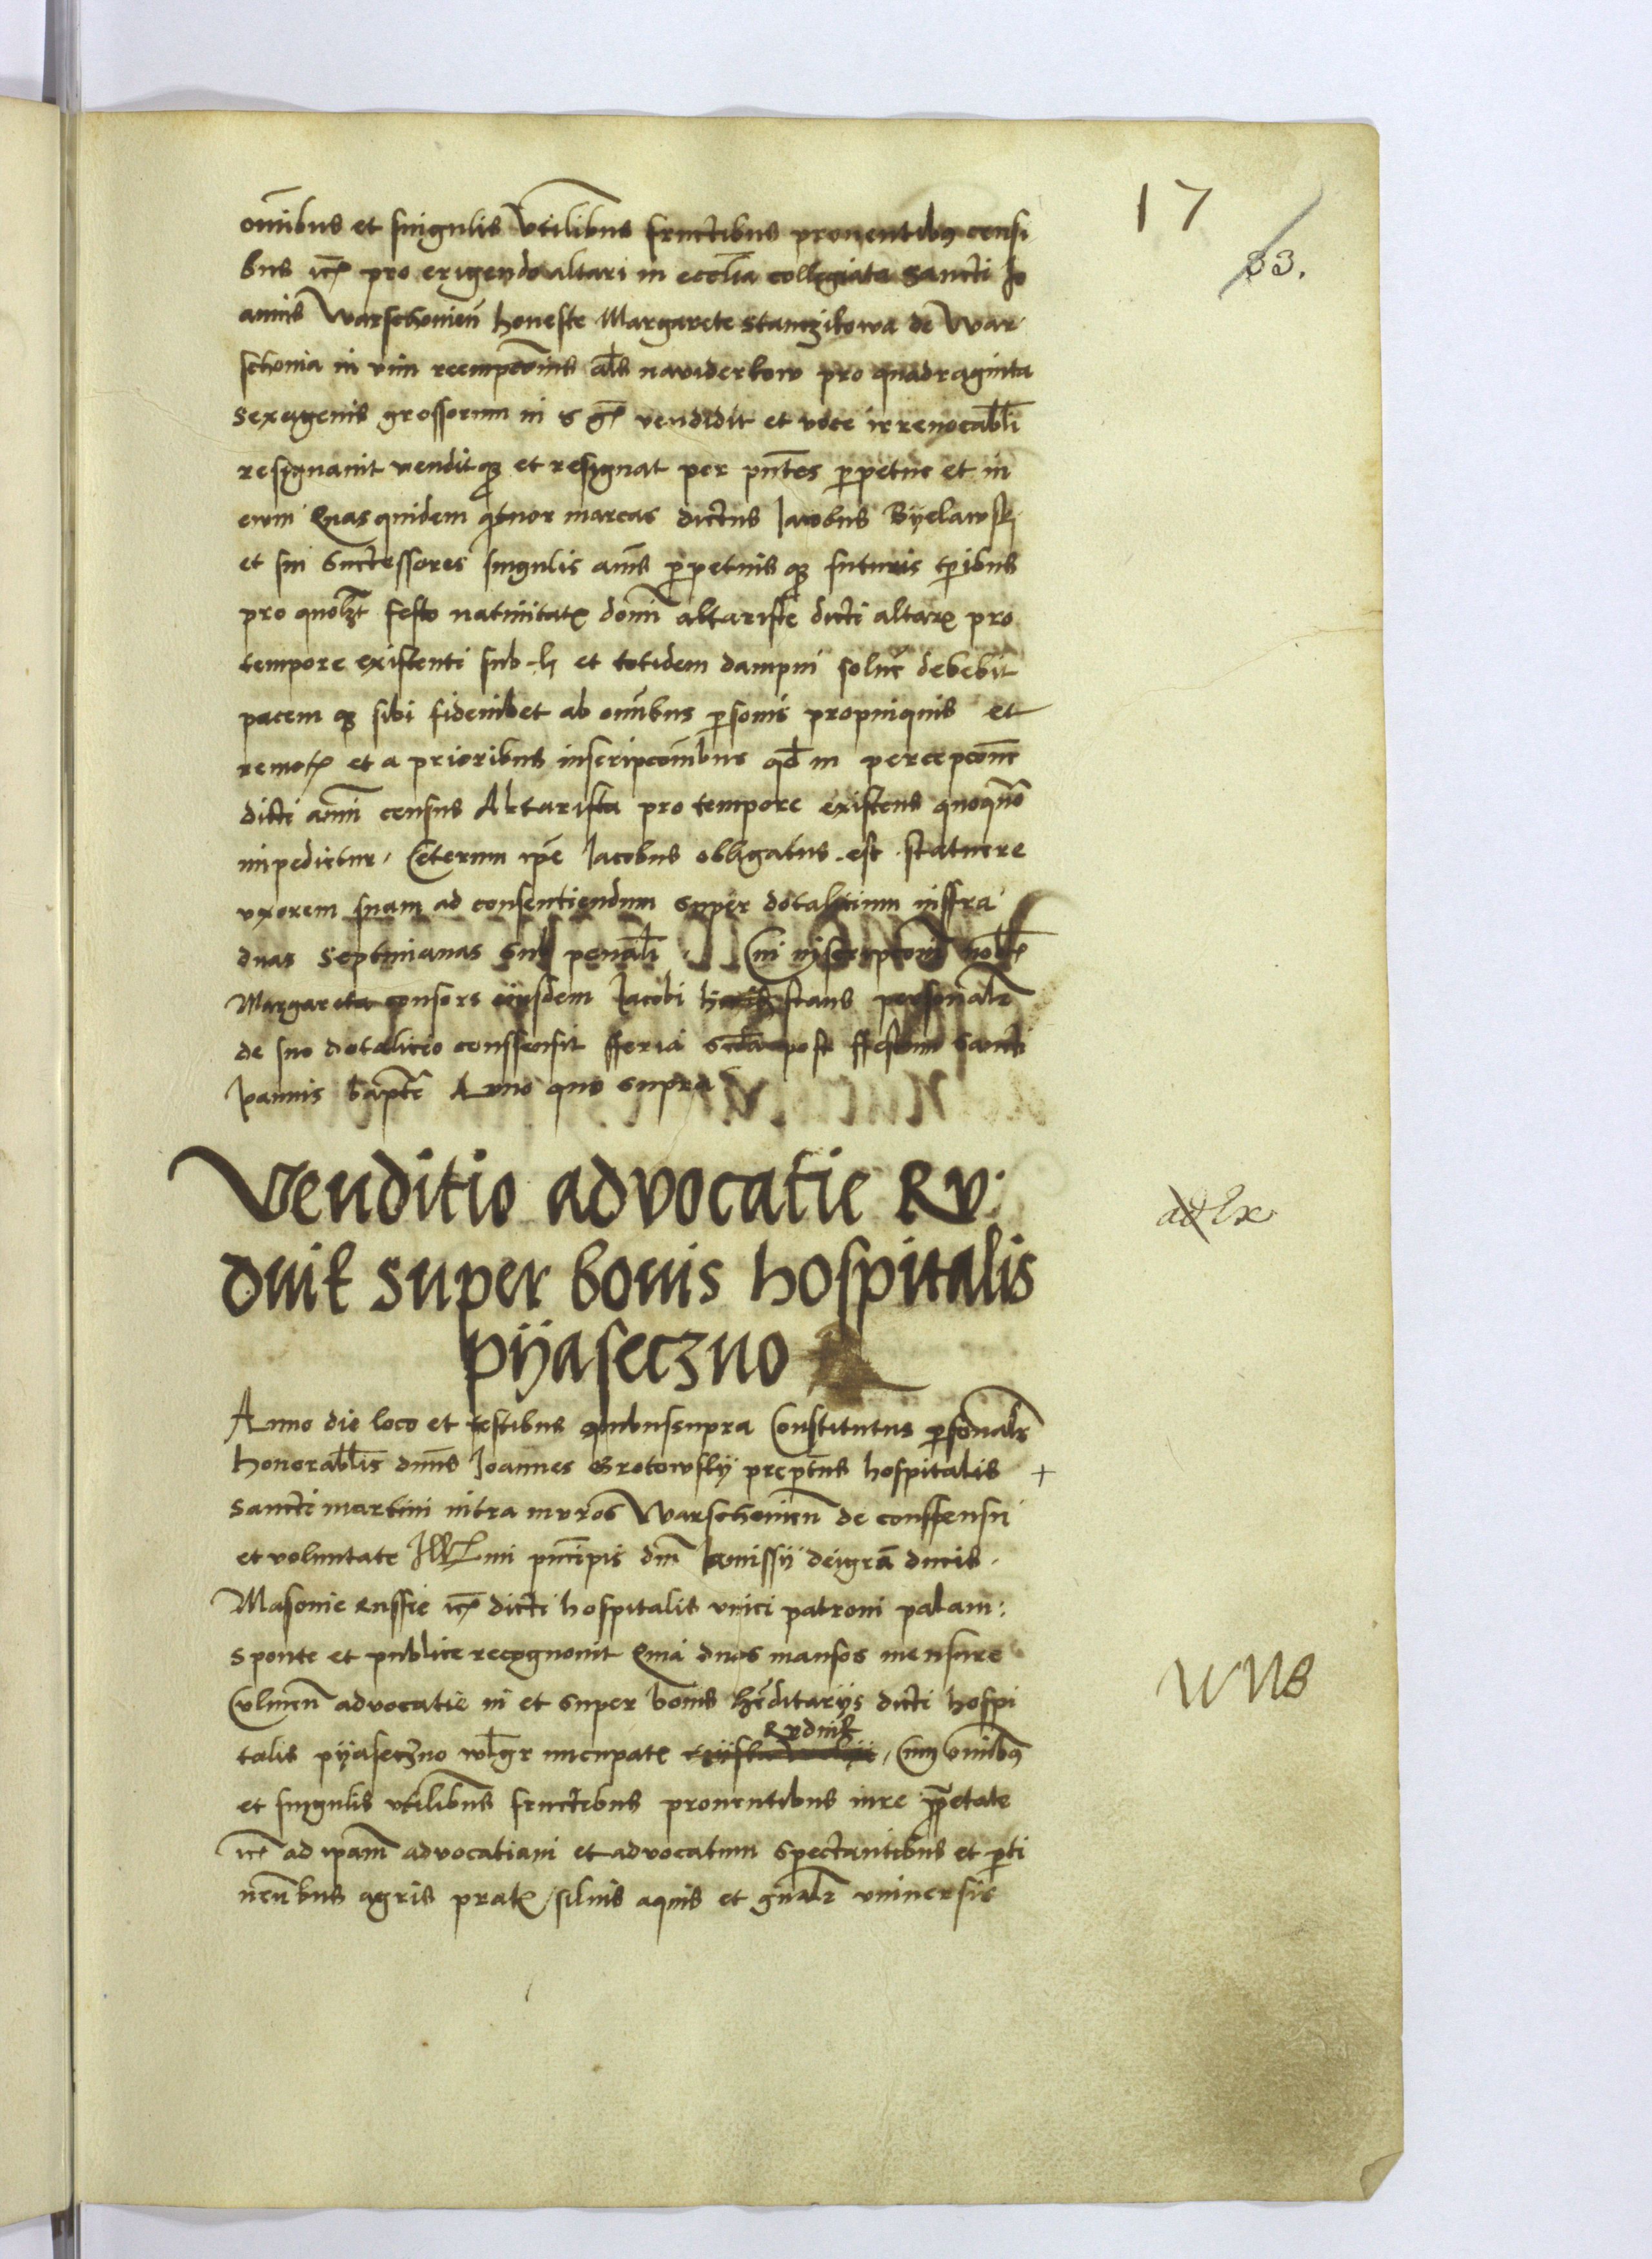 17
33.
om̄ibus et singulis vtilibus fructibus prouentibꝫ censi
bus etc̄ pro erigendo altari in eccl̄ia collegiata sancti Jo
annis Warschouien̄ honeste Margarete Stanczikowa de War
schouia in vim reempcōnis al̄s nawiderkow pro quadraginta
sexagenis grossorum in s gr̄ vendidit et voce irreuocabl̄i
resignauit venditqꝫ et resignat per pn̄tes perpetue et in
ewm Quas quidem qtuor marcas dictus Jacobus Byelawsk
et sui Suctessores singulis annis perpetuis qꝫ futuris tp̄ibus
pro quolꝫt festo natiuitatꝭ domī altariste dicti altarꝭ pro
tempore existenti sub h et totidem dampni soluē debebit
pacem qꝫ sibi fideiubet ab om̄ibus personis propinquis et
remotꝭ et a prioribus inscripcōnibus qd̄ in percepcōne
dicti annui census Altarista pro tempore existens quoqūo
impedietur / Ceterum ip̄e Jacobus obligatus est statuere
vxorem suam ad consentiendum super dotalitium inffra
duas Septimanas Sub penal̄i Cui inscriptoni nob
Margareta consors eiusdem Jacobi stans personal̄r
de suo dotalicio conssensit fferia scd̄a post ffestum Sancti
Joannis bapte Anno quo supra
Venditio advocatie Rv
dnik super bonis hospitalis
pÿaseczno
ad Ex
Anno die loco et testibus quibussupra Constitutus personal̄r
honorabl̄is dn̄us Joannes Grotowskÿ prept̄us hospitalis +
sancti martini intra mvros Warschouien̄ de conssensu
et voluntate Ill mi prīcipis dn̄i Janussÿ deigrā ducis
Masouie Russie etc̄ dicti hospitalis vnici patroni palam:
sponte et publice recognouit Quia duos mansos mensure
Culmen̄ advocatie in et super bonis hereditarÿs dicti hospi
WNB
Rvdnik
talis pÿaseczno wlgr nuncupatꝭ / Cum om̄ibꝫ
et singulis vtilibus fructibus prouentibus iure proprietate
etc̄ ad ipam advocatiam et advocatum spectantibus et perti
nen̄bus agris pratꝭ / siluis aquis et gn̄al̄r vniuersis